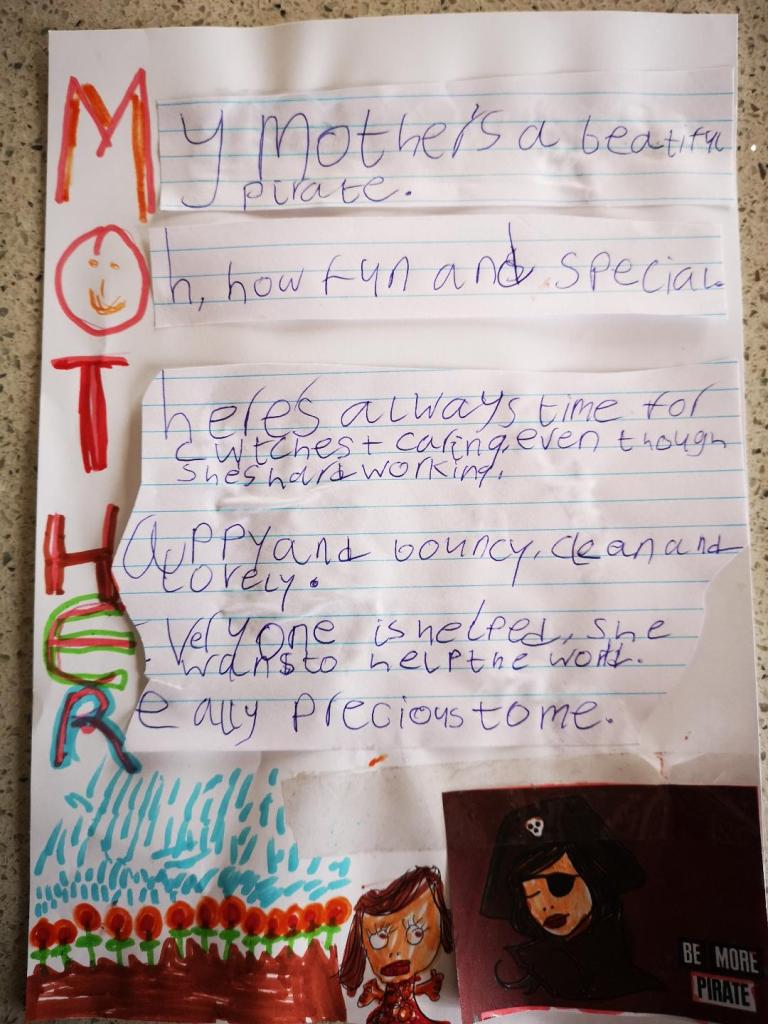 My mother's a beautiful
pirate.
Oh, how fun and special.
There's always time for
cwtches + caring, even though
she's hard working.
Happy and bouncy, clean and
lovely.
Everyone is helped, she
wants to help the world.
Really precious to me.
BE MORE
PIRATE